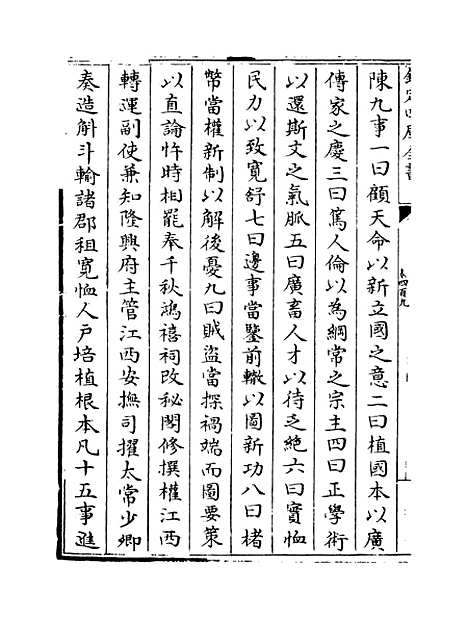 欽定四庫全書
卷四百九
陳九事一曰顧天命以新立國之意二曰植國本以廣
傳家之慶三曰篤人倫以為綱常之宗主四曰正學術
以還斯文之氣脈五曰廣畜人才以待乏絶六曰實恤
民力以致寛舒七曰邊事當鑒前轍以圖新功八曰楮
幣當權新制以解後憂九曰賊盜當探禍端而圖要策
以直論忤時相罷奉千秋鴻禧祠改秘閣修撰權江西
轉運副使兼知隆興府主管江西安撫司擢太常少卿
奏造斛斗輸諸郡租寛恤人户培植根本凡十五事進